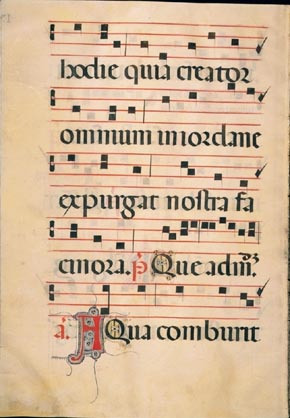 hodie quia creator
omnium in iordane
expurgat nostra fa
cinora. p̄ Que adm̄.
a. AQua comburit